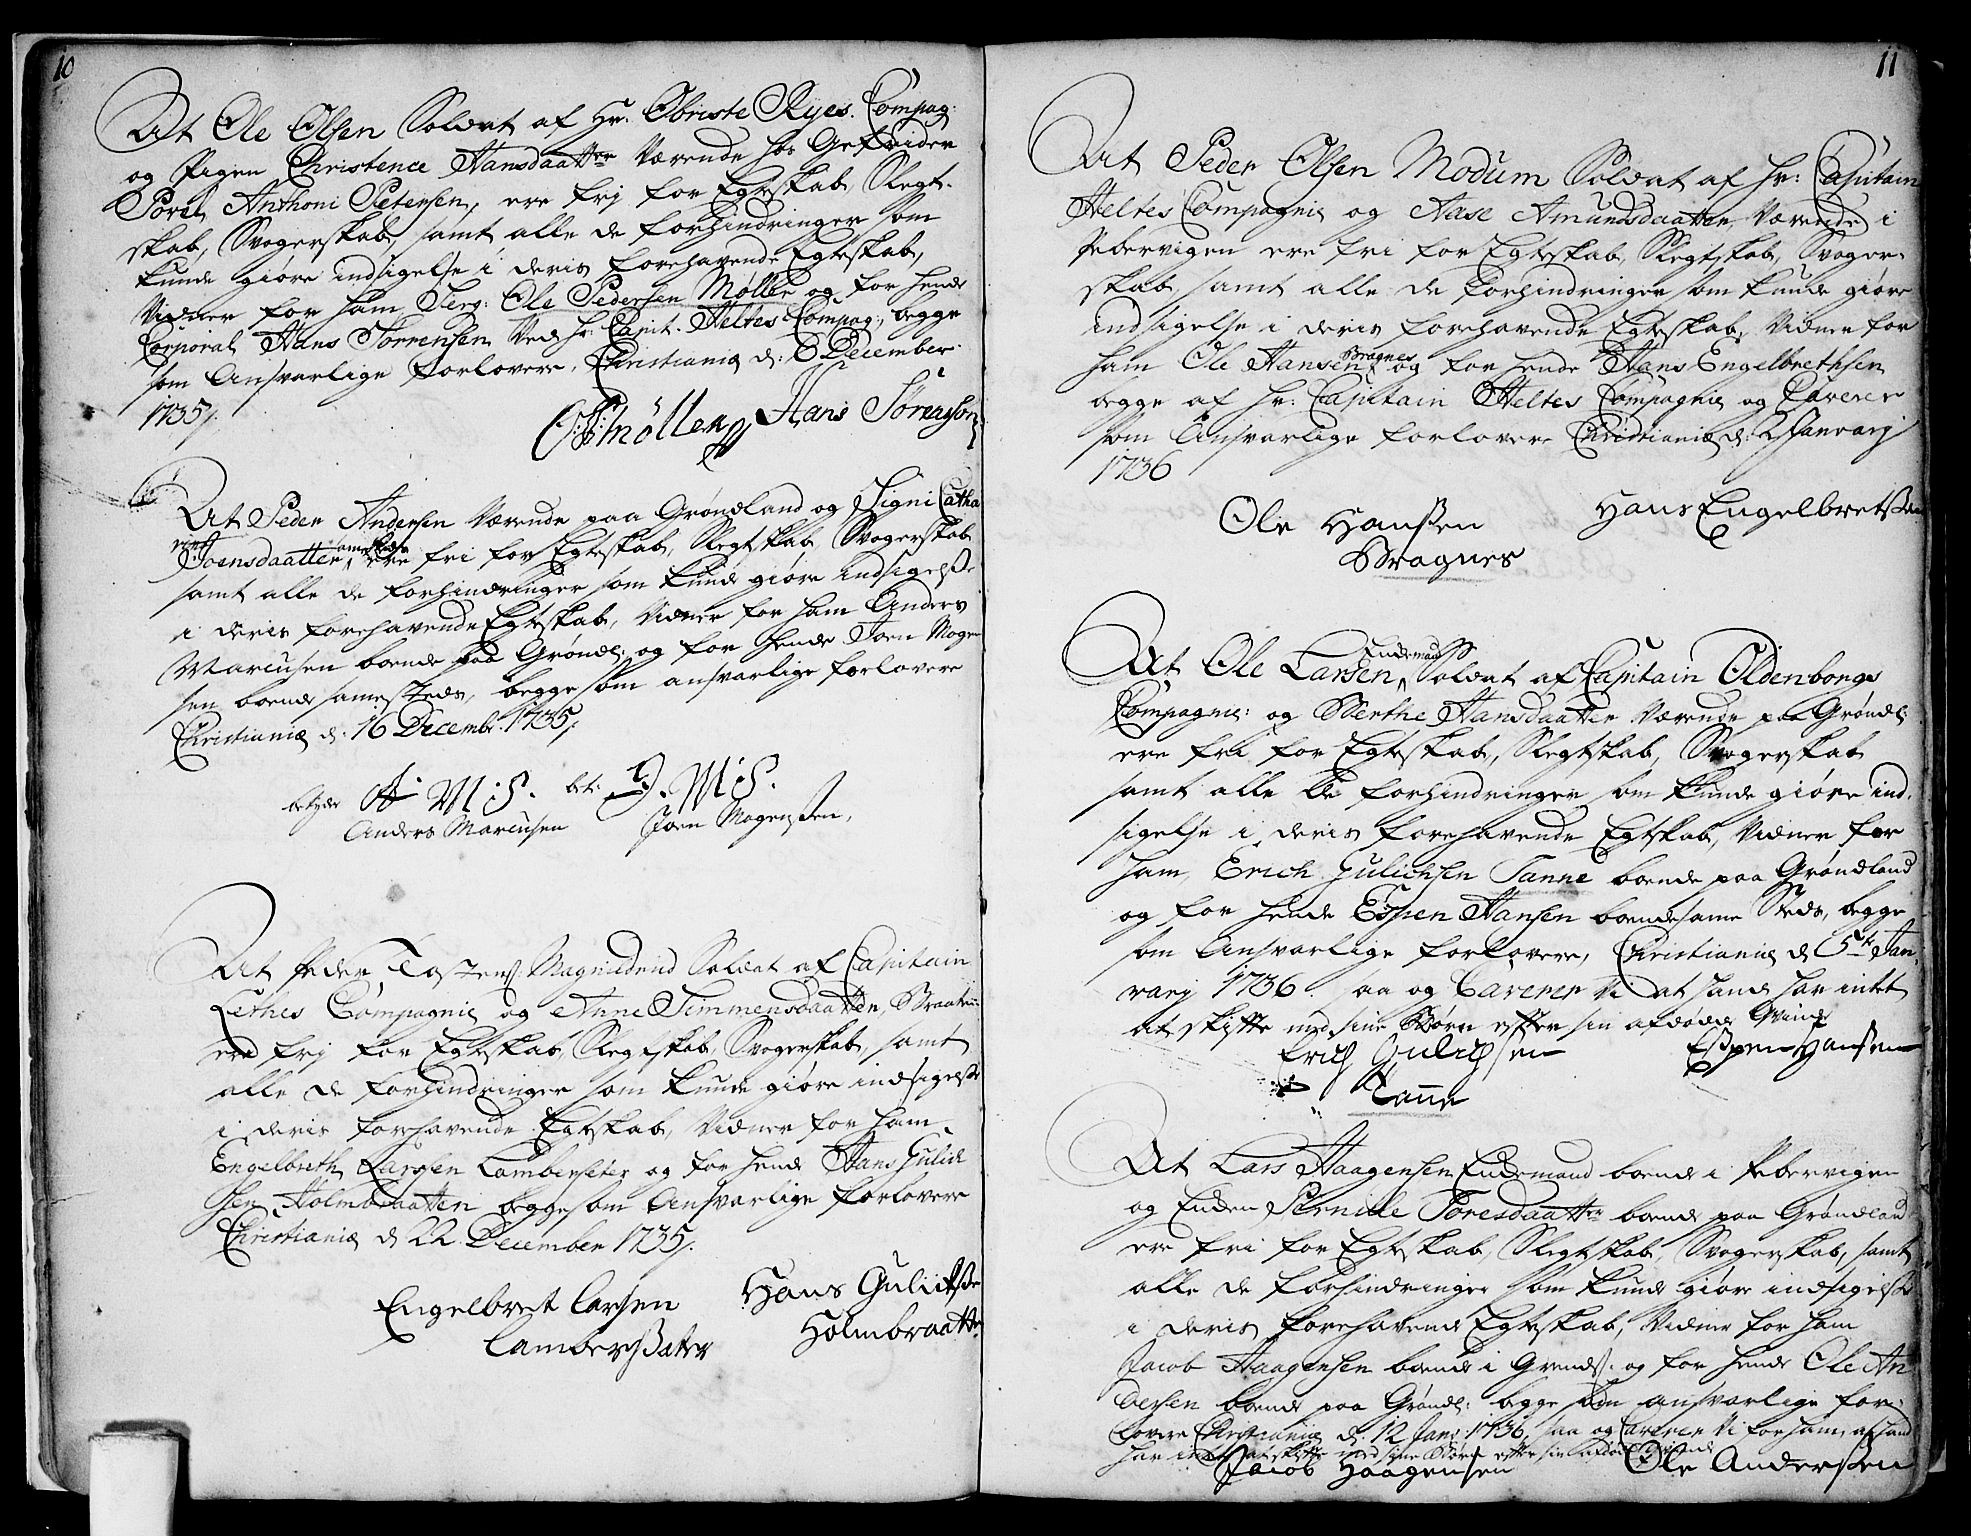 10
At Ole Olsen Soldat af Hr. Obriste Ryes Compag:
og Pigen Christence Hansdaatter Værende hos Gefreider
Poral Anthoni Petersen, ere frj for Egteskab, Slegt-
skab, Svogerskab, samt alle de forhindringer som
kunde giøre indsigelse i deris forehavende Egteskab,
Vidner for ham Serg: Ole Pedersen Møller og for hende
Corporal Hans Sørrensen Ved hr: Capit. Heltes Compag:, begge
som Ansvarlige forlovere, Christiania d: 6 December
1735/.
O:P:Møller Hans Sörensson
At Peder Andersen Værende paa Grøndland og Signi Catha
rina Joensdaatter samesteds ere fri for Egteskab, Slegtskab Svogerskab
samt alle de forhindringer som kunde giøre indsigelse
i deris forehavende Egteskab, Vidner for ham Anders
Marcusen boende paa Grøndl: og for hende Joen Mogen
sen boende samesteds, begge som ansvarlige forlovere
Christiania d: 16 Decembr. 1735/.
betyder A M:S. bet: J. M:S.
Anders Marcusen Joen Mogenssen,
At Peder Tostens: Soldat af Capitain
Lethes Compagnie og Anne Simmensdaatter,
ere frj for Egteskab, Slegtskab, Svogerskab, samt
alle de forhindringer som kunde giøre indsigelse
i deris forehavende Egteskab, Vidner for ham
Engelbreth Larssen Lamberseter og for hende Hans Gulich
sen Holmbraatten begge som Ansvarlige forlovere
Christiania d 22 December 1735/.
Engelbret Larsen Hans Guliichsse
Lamberssæter Holmbraatte
11
At Peder Olsen Modum Soldat af Hr: Capitain
Heltes Compagnie og Aase Amundsdaatter, Værende i
Pebervigen ere fri for Egteskab, Slegtskab, Svoger-
skab, samt alle de forhindringer som kunde giøre
indsigelse i deris forehavende Egteskab, Vidner for
ham Ole Hansen Bragnes og for hende Hans Engelbrethsen
begge af hr: Capitain Heltes Compagnie og Caverer
som Ansvarlige forlovere Christiania d: 2 Januarj
1736
Ole Hanssen Hans Engelbretssen
Bragnes
At Ole Larsen Enchemand Soldat af Capitain Oldenborgs
Compagnie: og Berthe Hansdaatter Værende paa Grøndl:
ere fri for Egteskab, Slegtskab, Svogerskab
samt alle de forhindringer som kunde giøre ind-
sigelse i deris forehavende Egteskab, Vidner for
ham, Erich Gulichsen Tanne boende paa Grøndland
og for hende Espen Hansen boende same Steds, begge
som Ansvarlige forlovere, Christiania d 5te Jan-
varij 1736. saa og Caverer Vi at hand har intet
at skifte med sine Børn efter sin afdøde Qvinde
Erich Gulichsen Espen Hansen
Tanne
At Lars Haagensen Enchemand boende i Pebervigen
og Enchen Pernille Toresdaatter boende paa Grøndland
ere fri for Egteskab, Slegtskab, Svogerskab, samt
alle de forhindringer som kunde giøre indsigelse
i deris forehavende Egteskab, Vidner for ham
Jacob Haagensen boende i Grends: og for hende Ole An
dersen boende paa Grøndl: begge som ansvarlige for-
lovere Christiania d. 12 Janv: 1736, saa og Caverer Vi for ham, at hand
har intet at skifte med sine Børn efter sin afdøde Qvinde
Jacob Haagensen Ole Anderssen